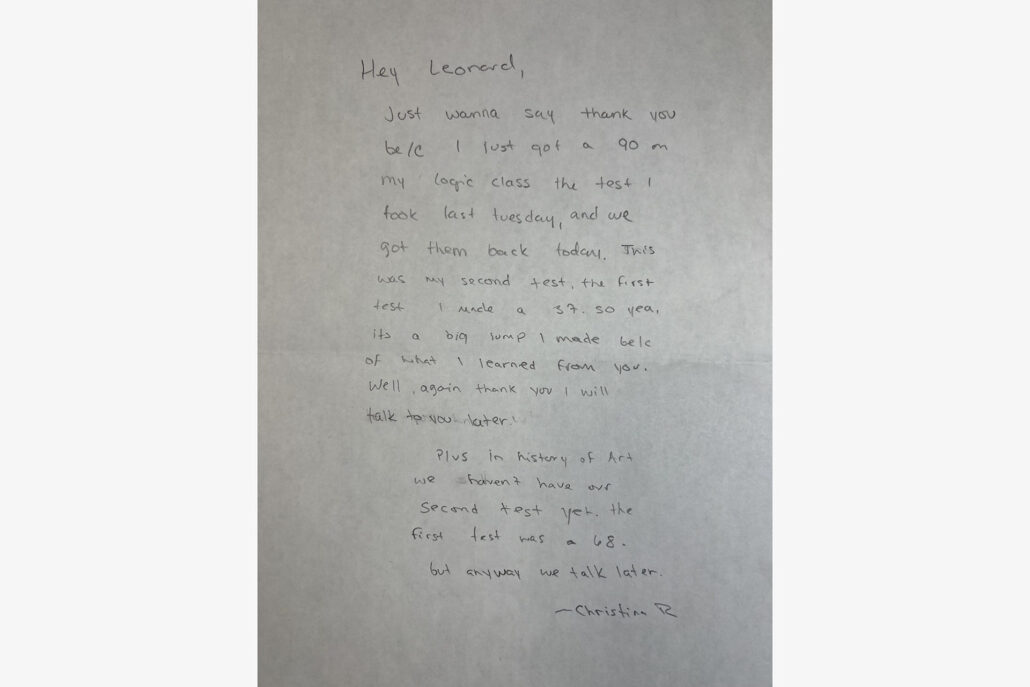 Hey Leonard,
Just wanna say thank you
be/c I just got a 90 on
my logic class the test I
took last tuesday, and we
got them back today. This
was my second test, the first
test I made a 37. so yea,
its a big jump I made be/c
of what I learned from you.
Well, again thank you I will
talk to you later!
Plus in history of Art
we haven't have our
second test yet. the
first test was a 68.
but anyway we talk later.
—Christina R